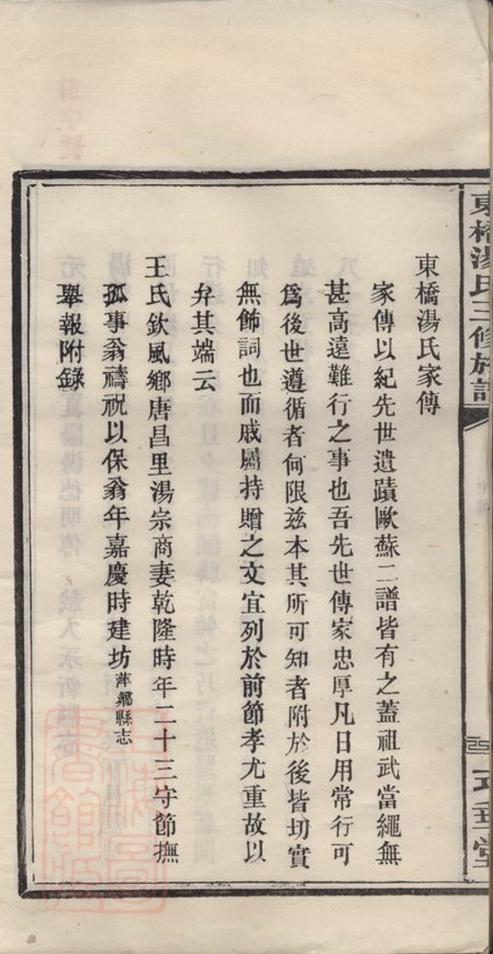 東橋湯氏三修族譜
東橋湯氏家傳
家傳以紀先世遺蹟歐蘇二譜皆有之蓋祖武當繩無
甚高遠難行之事也吾先世傳家忠厚凡日用常行可
爲後世遵循者何限兹本其所可知者附於後皆切實
無飾詞也而戚屬持贈之文宜列於前節孝尤重故以
弁其端云
王氏欽風鄉唐昌里湯宗商妻乾隆時年二十三守節撫
孤事翁禱祝以保翁年嘉慶時建坊萍鄉縣志
舉報附錄
上海圖書館藏